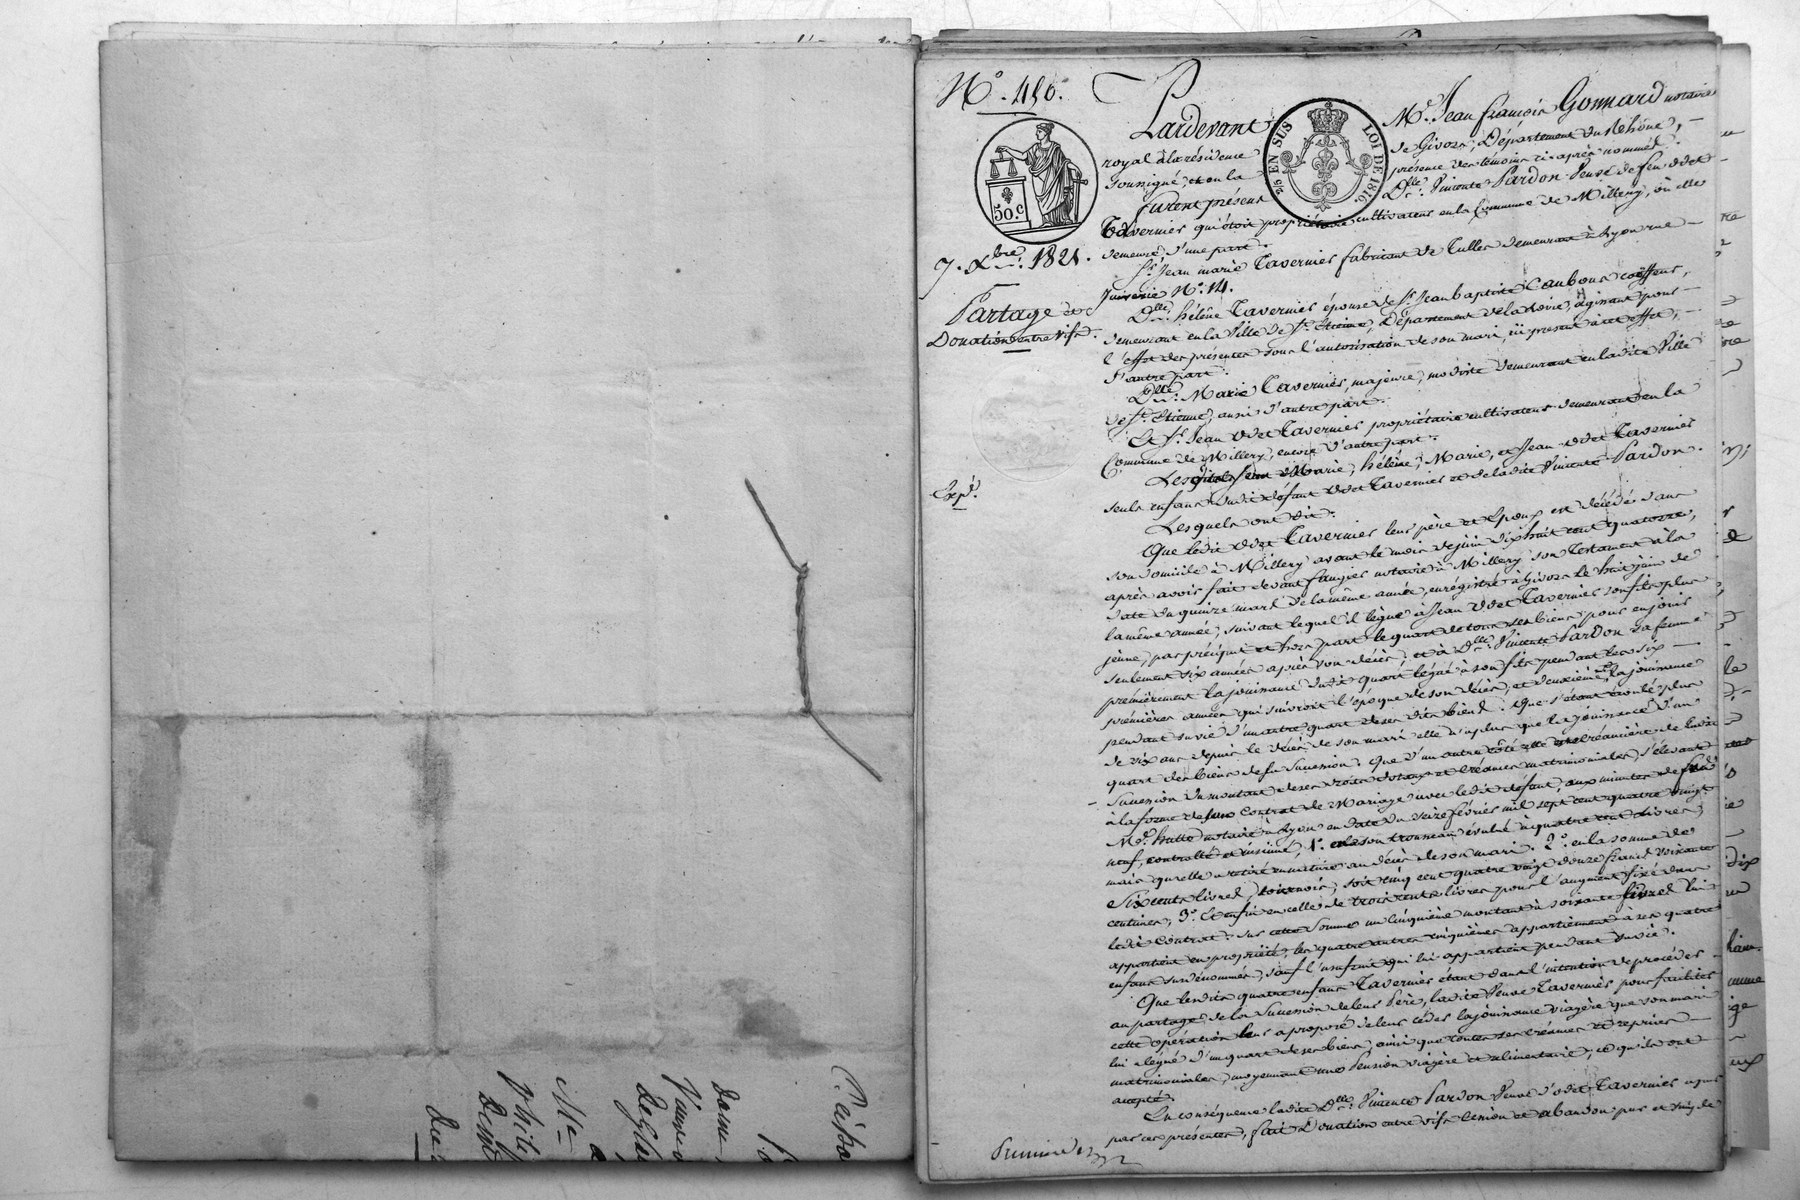 N.o 450.
50.c
2/5 EN SUS LOI DE 1816.
7. Xbre 1821.
Partage et
Donation entre vifs.
Exp.é
Pardevant M.e Jean François Gonnard notaire
royal à la résidence de Givors, Département du Rhône,
soussigné, et en la présence des témoins ci-après nommés.
furent présens D.lle Vincente Pardon veuve de feu Odet
Tavernier qui étoit propriétaire cultivateur en la Commune de Millery, où elle
demeure, d'une part.
S.r Jean marie Tavernier fabricant de Tulles demeurant à Lyon rue
Juiverie N.o 14.
D.lle hélène Tavernier épouse de S.r Jean baptiste Caubour coëffeur,
demeurant en la Ville de S.t Etienne, Département de la Loire, agissant pour
l'effet des présentes sous l'autorisation de son mari, ici présent à cet effet,
d'autre part.
D.lle Marie Tavernier, majeure, modiste demeurant en ladite Ville
de S.t Etienne, aussi d'autre part.
Et S.r Jean Odet Tavernier propriétaire cultivateur demeurant en la
Commune de Millery, encore d'autre part.
Lesdits Jean Marie, hélène, Marie, et Jean Odet Tavernier
seuls enfans dudit défunt Odet Tavernier et de ladite Vincente Pardon.
Lesquels ont dit:
Que ledit Odet Tavernier leur père et Epoux est décédé dans
son domicile à Millery avant le mois de juin dix huit cent quatorze,
après avoir fait devant notaire à Millery son Testament à la
date du quinze mars de la même année, enrégistré à Givors le huit juin de
la même année, suivant lequel il lègue à Jean Odet Tavernier son fils plus
jeune, par préciput et hors part le quart de tous ses biens pour en jouir
seulement six années après son décès; et à D.lle Vincente Pardon sa femme
premièrement la jouissance dudit quart légué à son fils pendant les six
premières années qui suivroit l'époque de son décès, et deuxièmt la jouissance
pendant sa vie d'un autre quart de ses dits biens. Que s'étant écoulé plus
de six ans depuis le décès de son mari elle n'a plus que la jouissance d'un
quart des biens de sa succession. Que d'un autre côté elle est créancière de ladite
succession du montant de ses droits dotaux et créances matrimoniales, s'élevant
à la forme de son Contrat de Mariage avec ledit défunt, aux minutes de
M.e notaire à Lyon en date du seize février mil sept cent quatre vingt
neuf, contrôlé et insinué, 1.o en son trousseau évalué à quatre cent livres,
mais qu'elle a retiré en nature au décès de son mari. 2.o en la somme de
Six cents livres tournois, soit cinq cent quatre vingt douze francs soixante
centimes, 3.o Et enfin en celle de trois cents livres pour l'augment fixé dans
ledit Contrat: sur cette somme un cinquième montant à soixante livres lui
appartient en propriété, les quatre autres cinquièmes appartiennent à ses quatre
enfans susdénommés, sauf l'usufruit qui lui appartient pendant sa vie.
Que lesdits quatre enfans Tavernier étant dans l'intention de procéder
au partage de la succession de leur Père, ladite Veuve Tavernier pour faciliter
cette opération leur a proposé de leur céder la jouissance viagère que son mari
lui a légué d'un quart de ses biens, ainsi que toutes ses créances et reprises
matrimoniales, moyennant une Pension viagère et alimentaire, ce qu'ils ont
accepté.
En conséquence ladite D.lle Vincente Pardon Veuve d'odet Tavernier
par ces présentes, fait Donation entre vifs cession et abandon pur et simple